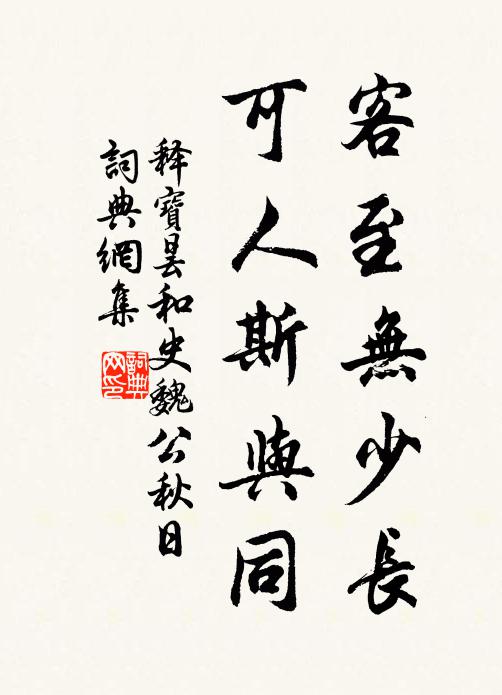 客至無少長
可人斯與同
释寶曇和史魏公秋日
詞典網集
詞典網印